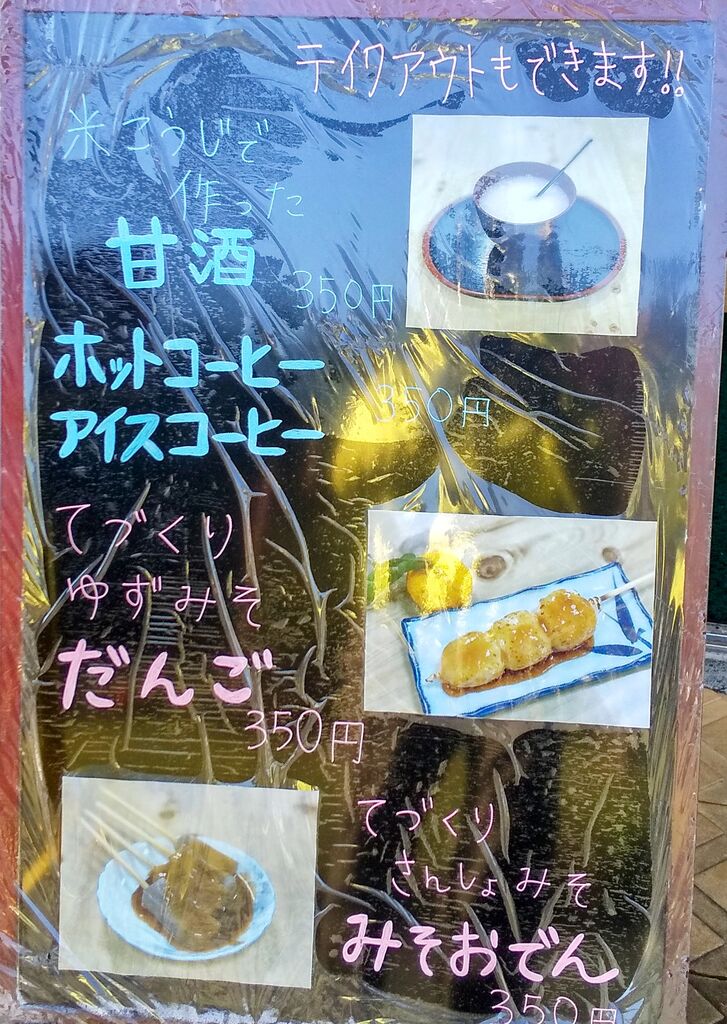 テイクアウトもできます!!
米こうじで
作った
甘酒
350円
ホットコーヒー
アイスコーヒー
350円
てづくり
ゆずみそ
だんご
350円
てづくり
さんしょみそ
みそおでん
350円